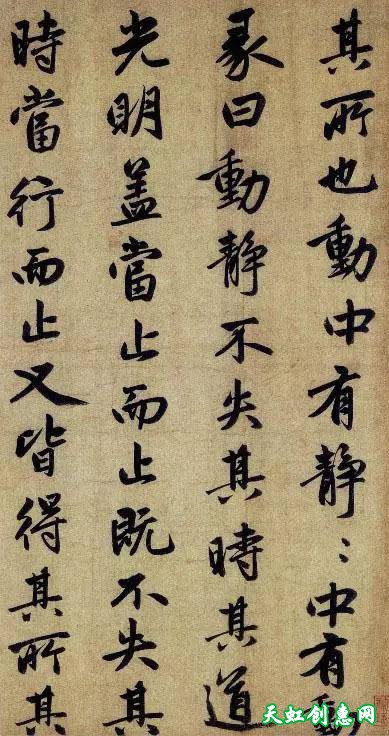 其所也動中有靜〻中有動
彖曰動靜不失其時其道
光明蓋當止而止既不失其
時當行而止又皆得其所其
天虹创惠网